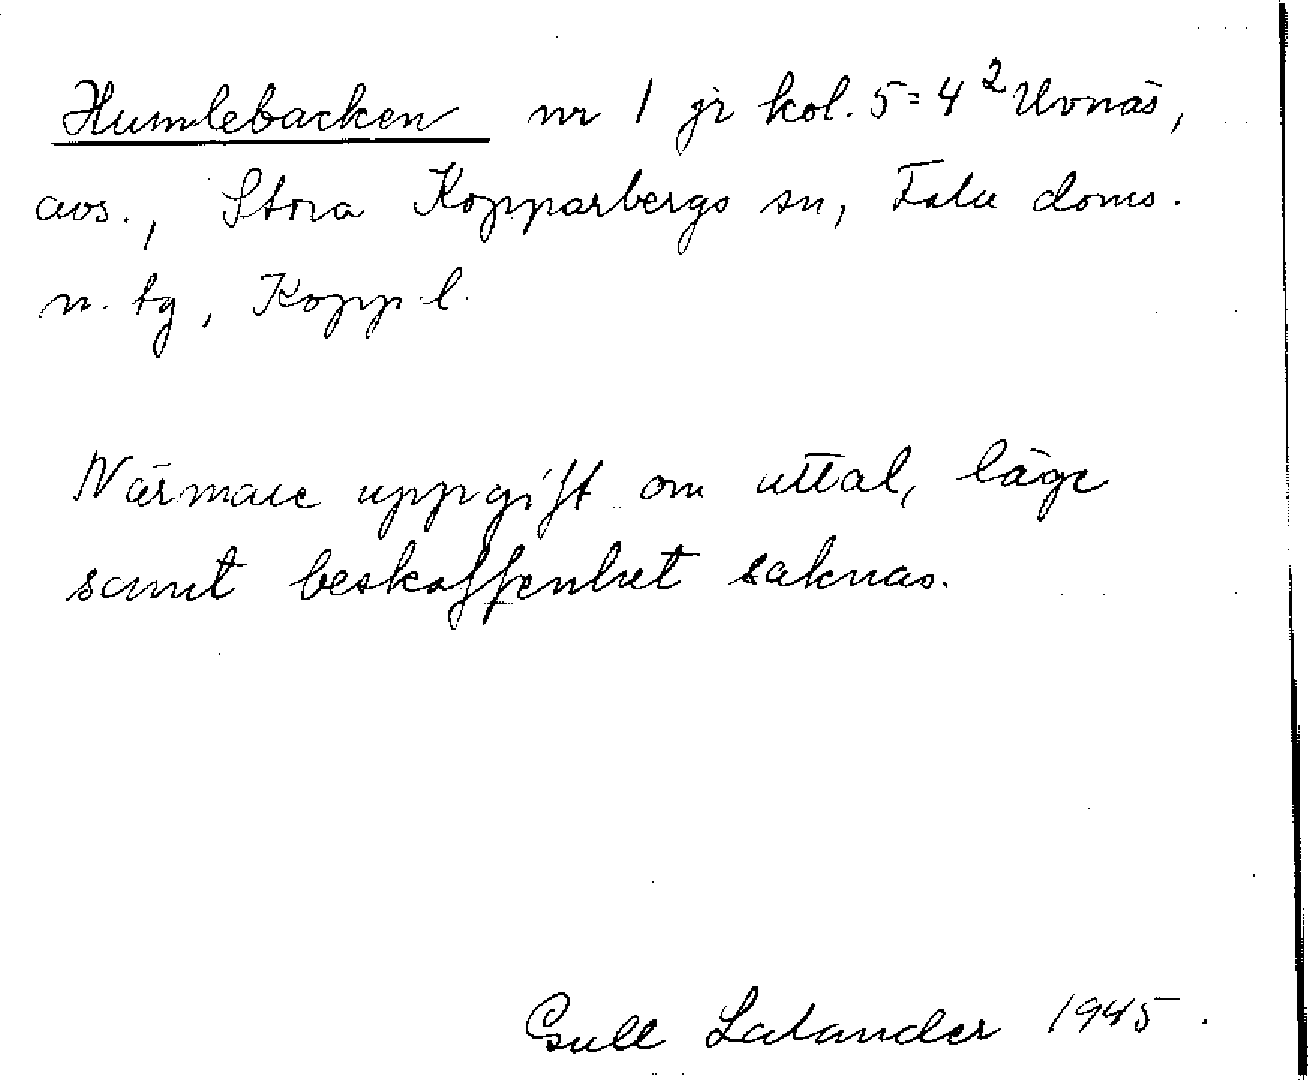 Humlebacken nr 1 jr kol. 5=4² Uvnäs,
avs., Stora Kopparbergs sn, Falu doms.
n. tg, Kopp l.
Närmare uppgift om uttal, läge
samt beskaffenhet saknas.
Gull Latander 1945.